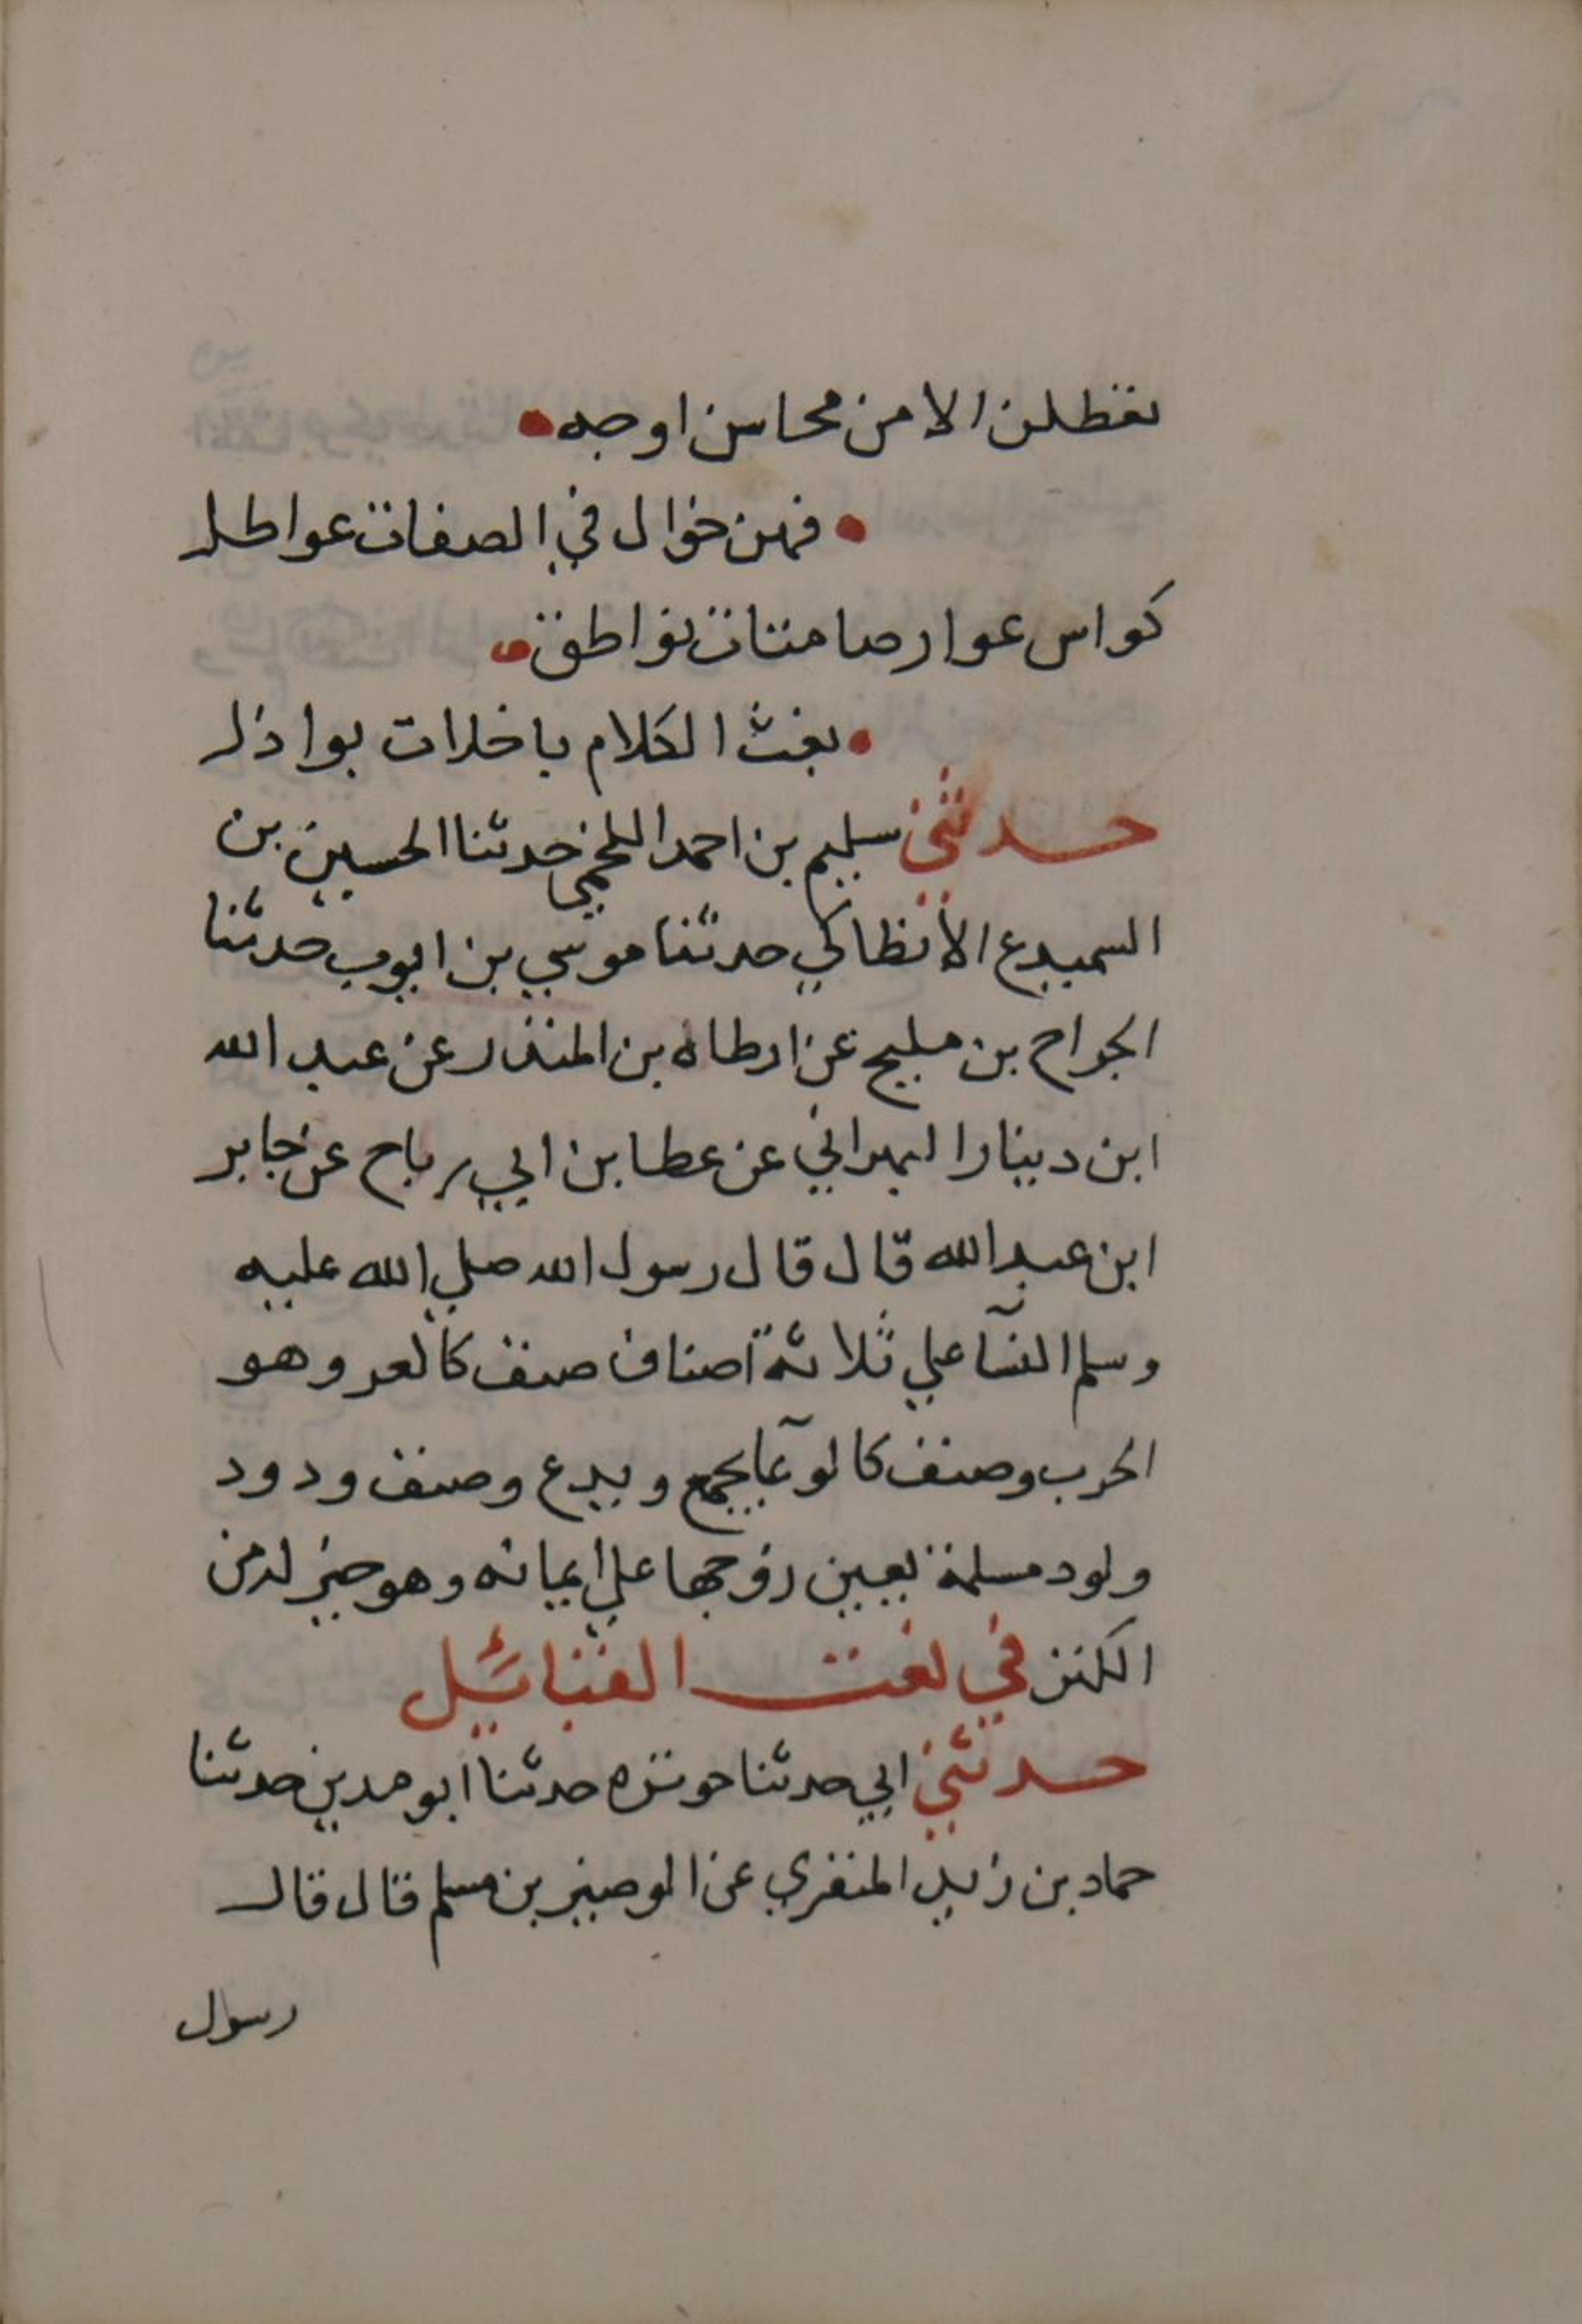 تعطلن الا من محاسن اوجه
فهن خوال في الصفات عواطل
كواس عوار صامتات نواطق
بعث الكلام باخلات بواذل
حدثني سليم بن احمد اللخمي حدثنا الحسين بن
السميدع الانطاكي حدثنا موسي بن ايوب حدثنا
الجراح بن مليح عن ارطاه بن المنذر عن عبد الله
ابن دينار البهراني عن عطا بن ابي رباح عن جابر
ابن عبد الله قال قال رسول الله صلي الله عليه
وسلم النسآ علي ثلاثة اصناف صنف كالعر وهو
الحرب وصنف كالوعآ يجمع ويدع وصنف ودود
ولود مسلمة تعين زوجها علي ايمانه وهو خير له من
الكنز في نعت القبائيل
حدثني ابي حدثنا حوثره حدثنا ابو مدين حدثنا
حماد بن زيد المنقري عن الوضين بن مسلم قال قال
رسول